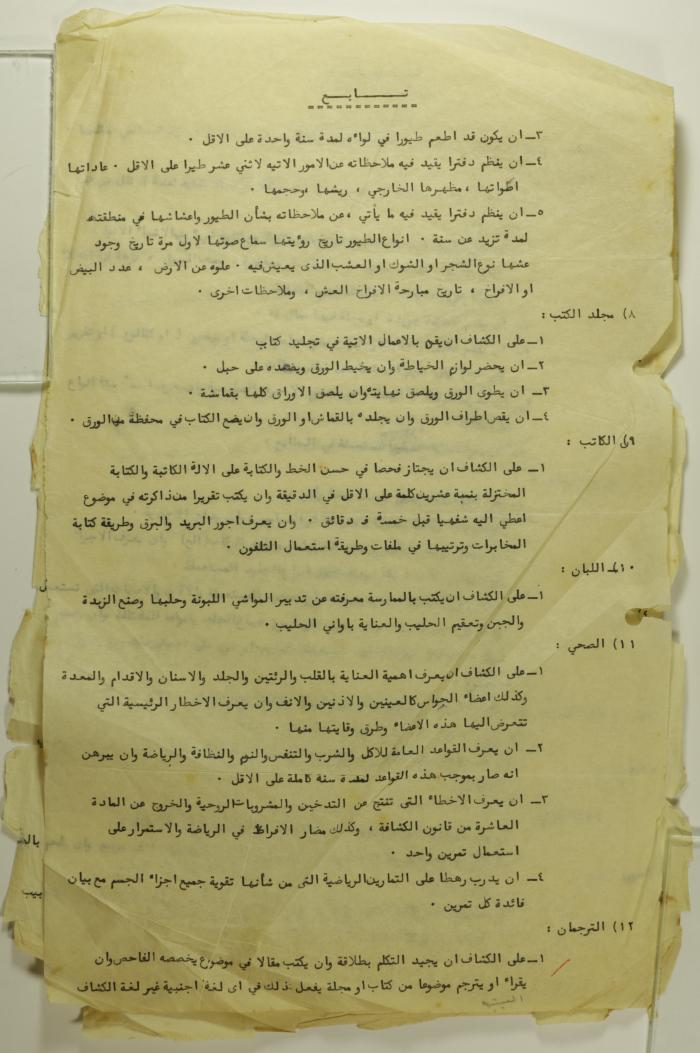 تـــــــابـــــــع
٣ــ ان يكون قد اطعم طيورا في لوائه لمدة سنة واحدة على الاقل ٠
٤ــ ان ينظم دفترا يقيد فيه ملاحظاته عن الامور الاتيه لاثني عشر طيرا على الاقل ٠ عاداتها
اصواتها ، مظهرها الخارجي ، ريشها ،وحجمها ٠
٥ــ ان ينظم دفترا يقيد فيه ما يأتي ،عن ملاحظاته بشأن الطيور واعشاشها في منطقته
لمدة تزيد عن سنة ٠ انواع الطيور تاريخ روئيتها سماع صوتها لاول مرة تاريخ وجود
عشها نوع الشجر او الشوك او العشب الذى يعيش فيه ٠ علوه عن الارض ، عدد البيض
او الافراخ ، تاريخ مبارحة الافراخ العش ، وملاحظات اخرى ٠
٨) مجلد الكتب :
١ــ على الكشاف ان يقوم بالاعمال الاتية في تجليد كتاب
٢ــ ان يحضر لوازم الخياطة وان يخيط الورق ويضعه على حبل ٠
٣ــ ان يطوى الورق ويلصق نهايته وان يلصق الاوراق كلها بقماشة ٠
٤ــ ان يقص اطراف الورق وان يجلده بالقماش او الورق وان يضع الكتاب في محفظة من الورق ٠
٩) الكاتب :
١ــ على الكشاف ان يجتاز فحصا في حسن الخط والكتابة على الالة الكاتبة والكتابة
المختزلة بنسبة عشرين كلمة على الاقل في الدقيقة وان يكتب تقريرا من ذاكرته في موضوع
اعطي اليه شفهيا قبل خمسة دقائق ٠ وان يعرف اجور البريد والبرق وطريقة كتابة
المخابرات وترتيبها في ملفات وطريقة استعمال التلفون ٠
١٠) اللبان :
١ــ على الكشاف ان يكتب بالممارسة معرفته عن تدبير المواشي اللبونة وحلبها وصنع الزبدة
والجبن وتعقيم الحليب والعناية باواني الحليب ٠
١١) الصحي :
١ــ على الكشاف ان يعرف اهمية العناية بالقلب والرئتين والجلد والاسنان والاقدام والمعدة
وكذلك اعضاء الحواس كالعينين والاذنين والانف وان يعرف الاخطار الرئيسية التي
تتعرض اليها هذه الاعضاء وطرق وقايتها منها ٠
٢ــ ان يعرف القواعد العامة للاكل والشرب والتنفس والنوم والنظافة والرياضة وان يبرهن
انه صار بموجب هذه القواعد لمدة سنة كاملة على الاقل ٠
٣ــ ان يعرف الاخطاء التى تنتج عن التدخين والمشروبات الروحية والخروج عن المادة
العاشرة من قانون الكشافة ، وكذلك مضار الافراط في الرياضة والاستمرار على
استعمال تمرين واحد ٠
٤ــ ان يدرب رهطا على التمارين الرياضية التى من شأنها تقوية جميع اجزاء الجسم مع بيان
فائدة كل تمرين ٠
١٢) الترجمان :
١ــ على الكشاف ان يجيد التكلم بطلاقة وان يكتب مقالا في موضوع يخصصه الفاحص وان
يقراء او يترجم موضوعا من كتاب او مجلة يفعل ذلك في اى لغة اجنبية غير لغة الكشاف